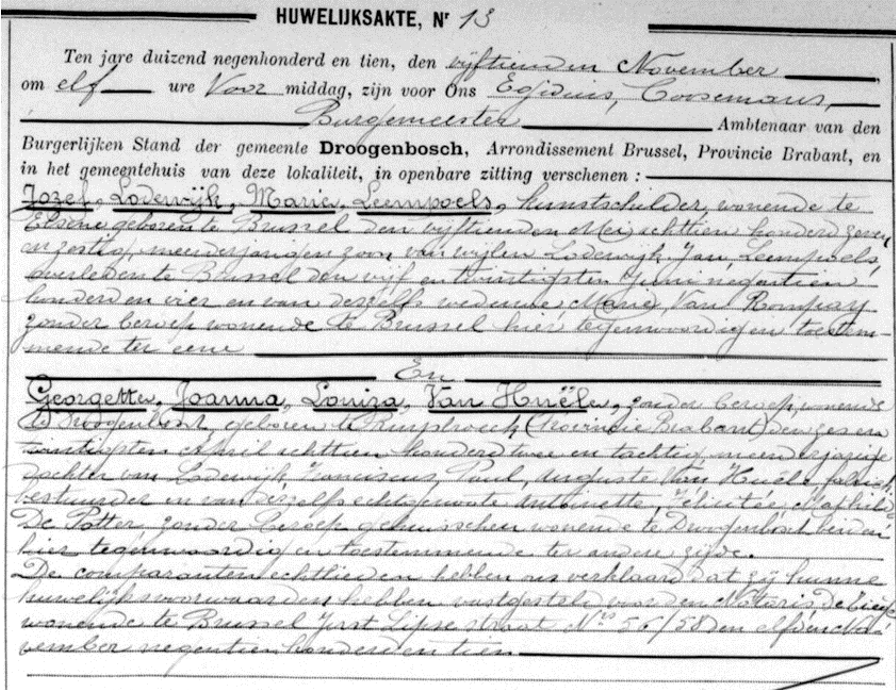 HUWELIJKSAKTE, Nr 13
Ten jare duizend negenhonderd en tien, den vijftienden November
om elf ure Voor middag, zijn voor Ons Egidius, Coosemans,
Burgemeester Ambtenaar van den
Burgerlijken Stand der gemeente Droogenbosch, Arrondissement Brussel, Provincie Brabant, en
in het gemeentehuis van deze lokaliteit, in openbare zitting verschenen :
Jozef, Lodewijk, Maria, Leempoels, kunstschilder, wonende te
Elsene geboren te Brussel den vijftienden Mei achttien honderd zeven
en zestig, meerderjarigen zoon van wijlen Lodewijk, Jan, Leempoels,
overleden te Brussel den vijf en twintigsten Juni negentien
honderd en vier en van deszelfs weduwe Marie Van Rompay
zonder beroep wonende te Brussel hier tegenwoordig en toestem-
mende ter eene
En
Georgette, Joanna, Louiza, Van Huële, zonder beroep, wonende
te Droogenbosch, geboren te Ruysbroeck (Provincie Brabant) den zes en
twintigsten April achttien honderd twee en tachtig, meerderjarige
dochter van Lodewijk, Franciscus, Paul, Auguste Van Huële,
bestuurder en van deszelfs echtgenoote Antoinette, Félicité,
De Potter, zonder beroep gehuisschen wonende te Droogenbosch beiden
hier tegenwoordig en toestemmende ter andere zijde.
De comparanten echtlieden hebben ons verklaard dat zij hunne
huwelijksvoorwaarden hebben vastgesteld voor den Notaris
wonende te Brussel Just Lipse straat Nrs 56/58 den elfden No-
vember negentienhonderd en tien